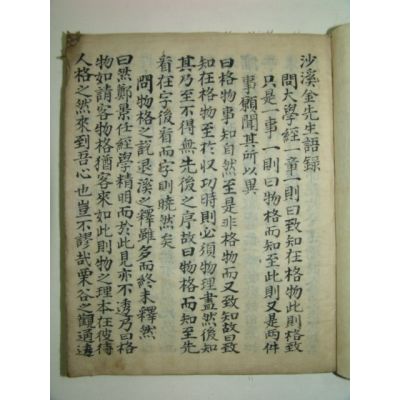 沙溪金先生語録
問大學經一章一則曰致知在格物此則格致
只是一事一則曰物格而知至此則又是兩件
事願聞其所以異
曰格物事知自然至是非格物而又致知故曰致
知在格物至於收功時則必須物理盡然後知
其乃至不得無先後之序故曰物格而知至先
看在字後看而字則曉然矣
問物格之說退溪之釋雖多而終未釋然
曰然鄭景任經學精明而於此見亦不透乃曰格
物如請客物格猶客來如此則物之理本在彼待
人格之然來到吾心也豈不謬哉栗谷之觀通透